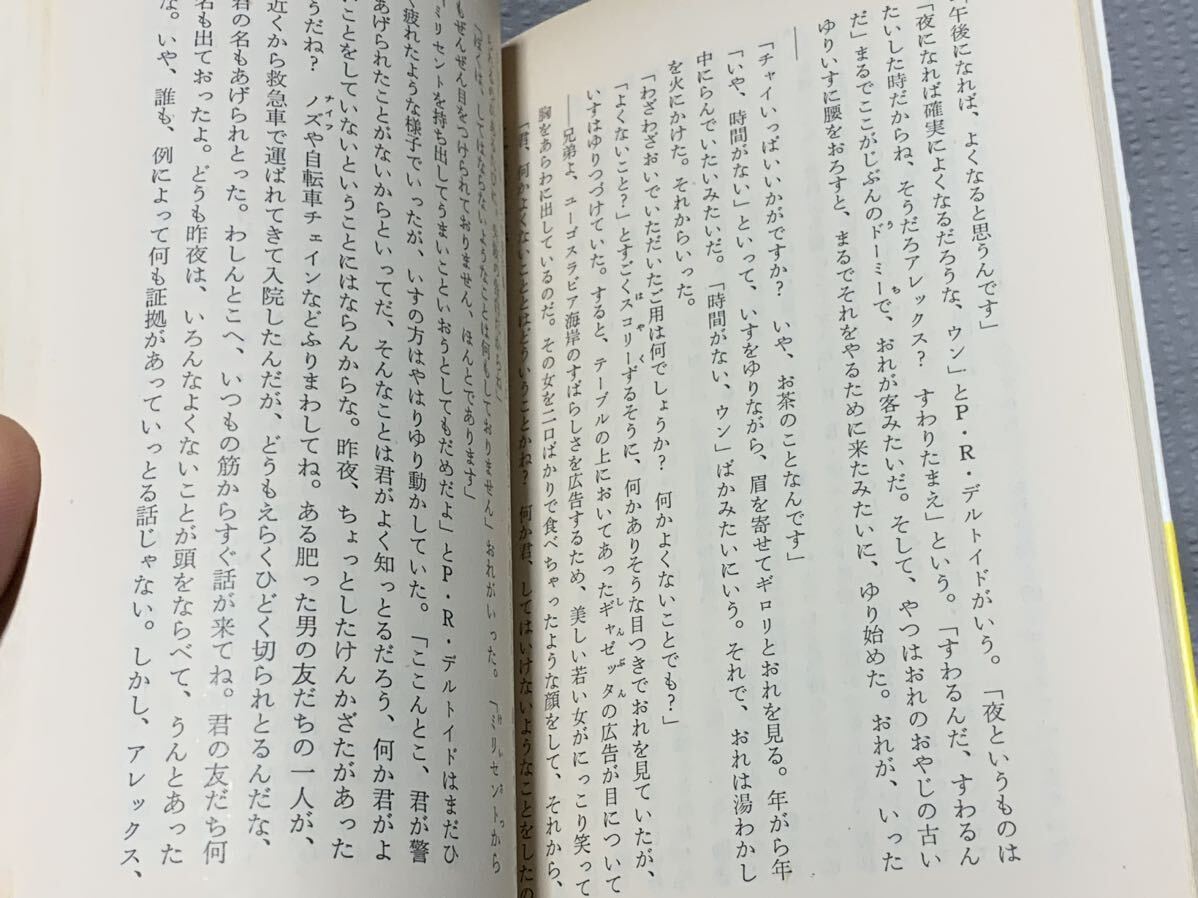 午後になれば、よくなると思うんです」
「夜になれば確実によくなるだろうな、ウン」とP・R・デルトイドがいう。「夜というものは
たいした時だからね、そうだろアレックス? すわりたまえ」という。「すわるんだ、すわるん
だ」まるでここがじぶんのドーミーで、おれが客みたいだ。そして、やつはおれのおやじの古い
うち
ゆりいすに腰をおろすと、まるでそれをやるために来たみたいに、ゆり始めた。おれが、いった
――
「チャイいっぱいいかがですか? いや、お茶のことなんです」
「いや、時間がない」といって、いすをゆりながら、眉を寄せてギロリとおれを見る。年がら年
中にらんでいたいみたいだ。「時間がない、ウン」ばかみたいにいう。それで、おれは湯わかし
を火にかけた。それからいった。
「わざわざおいでいただいたご用は何でしょうか? 何かよくないことでも?」
「よくないこと?」とすごくスコリーずるそうに、何かありそうな目つきでおれを見ていたが、
はやく
いすはゆりつづけていた。すると、テーブルの上においてあったギャゼッタの広告が目について
しんぶん
――兄弟よ、ユーゴスラビア海岸のすばらしさを広告するため、美しい若い女がにっこり笑って
胸をあらわに出しているのだ。その女を二口ばかりで食べちゃったような顔をして、それから、
「君、何かよくないこととはどういうことかね? 何か君、してはいけないようなことをしたの
「ぼくは、してはならないようなことは何もしておりません」おれがいった。「ミリセントから
けいさつ
もぜんぜん目をつけられておりません、ほんとであります」
ーミリセントを持ち出してうまいこといおうとしてもだめだよ」とP・R・デルトイドはまだひ
く疲れたような様子でいったが、いすの方はやはりゆり動かしていた。「ここんとこ、君が警
あげられたことがないからといってだ、そんなことは君がよく知っとるだろう、何か君がよ
ことをしていないということにはならんからな。昨夜、ちょっとしたけんかざたがあった
うだね? ノズや自転車チェインなどふりまわしてね。ある肥った男の友だちの一人が、
ナイフ
近くから救急車で運ばれてきて入院したんだが、どうもえらくひどく切られとるんだな、
君の名もあげられとった。わしんとこへ、いつもの筋からすぐ話が来てね。君の友だち何
名も出ておったよ。どうも昨夜は、いろんなよくないことが頭をならべて、うんとあった
な。いや、誰も、例によって何も証拠があっていっとる話じゃない。しかし、アレックス、